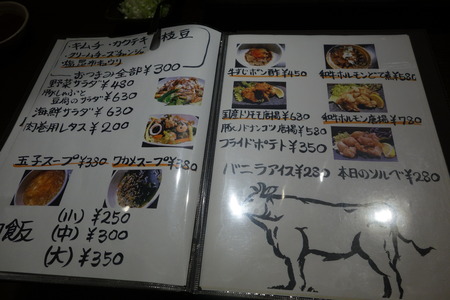 ・キムチ・カクテキ 枝豆
・クリームチーズチャンジャ
・塩昆布キュウリ
おつまみ全部¥300
野菜サラダ¥480
豚しゃぶと
豆腐のサラダ¥630
海鮮サラダ¥630
肉巻用レタス¥200
玉子スープ¥380 ワカメスープ¥380
飯
(小)¥250
(中)¥300
(大)¥350
牛すじポン酢¥450
和牛ホルモン
¥680
国産ドリモモ唐揚¥630
和牛ホルモン唐揚¥780
豚ヒザナンコツ唐揚¥580
フライドポテト¥350
バニラアイス¥280 本日のソルベ¥280